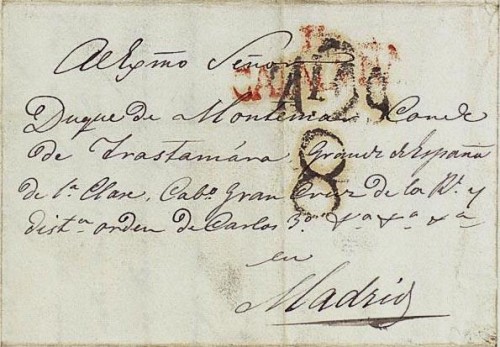 Al Exmo Señor
Duque de Montemar Conde
de Trastamára, Grande de España
de 1ª Clase, Cabº Gran Cruz de la Rl. y
distª orden de Carlos 3º &ª &ª &ª
en
Madrid
8